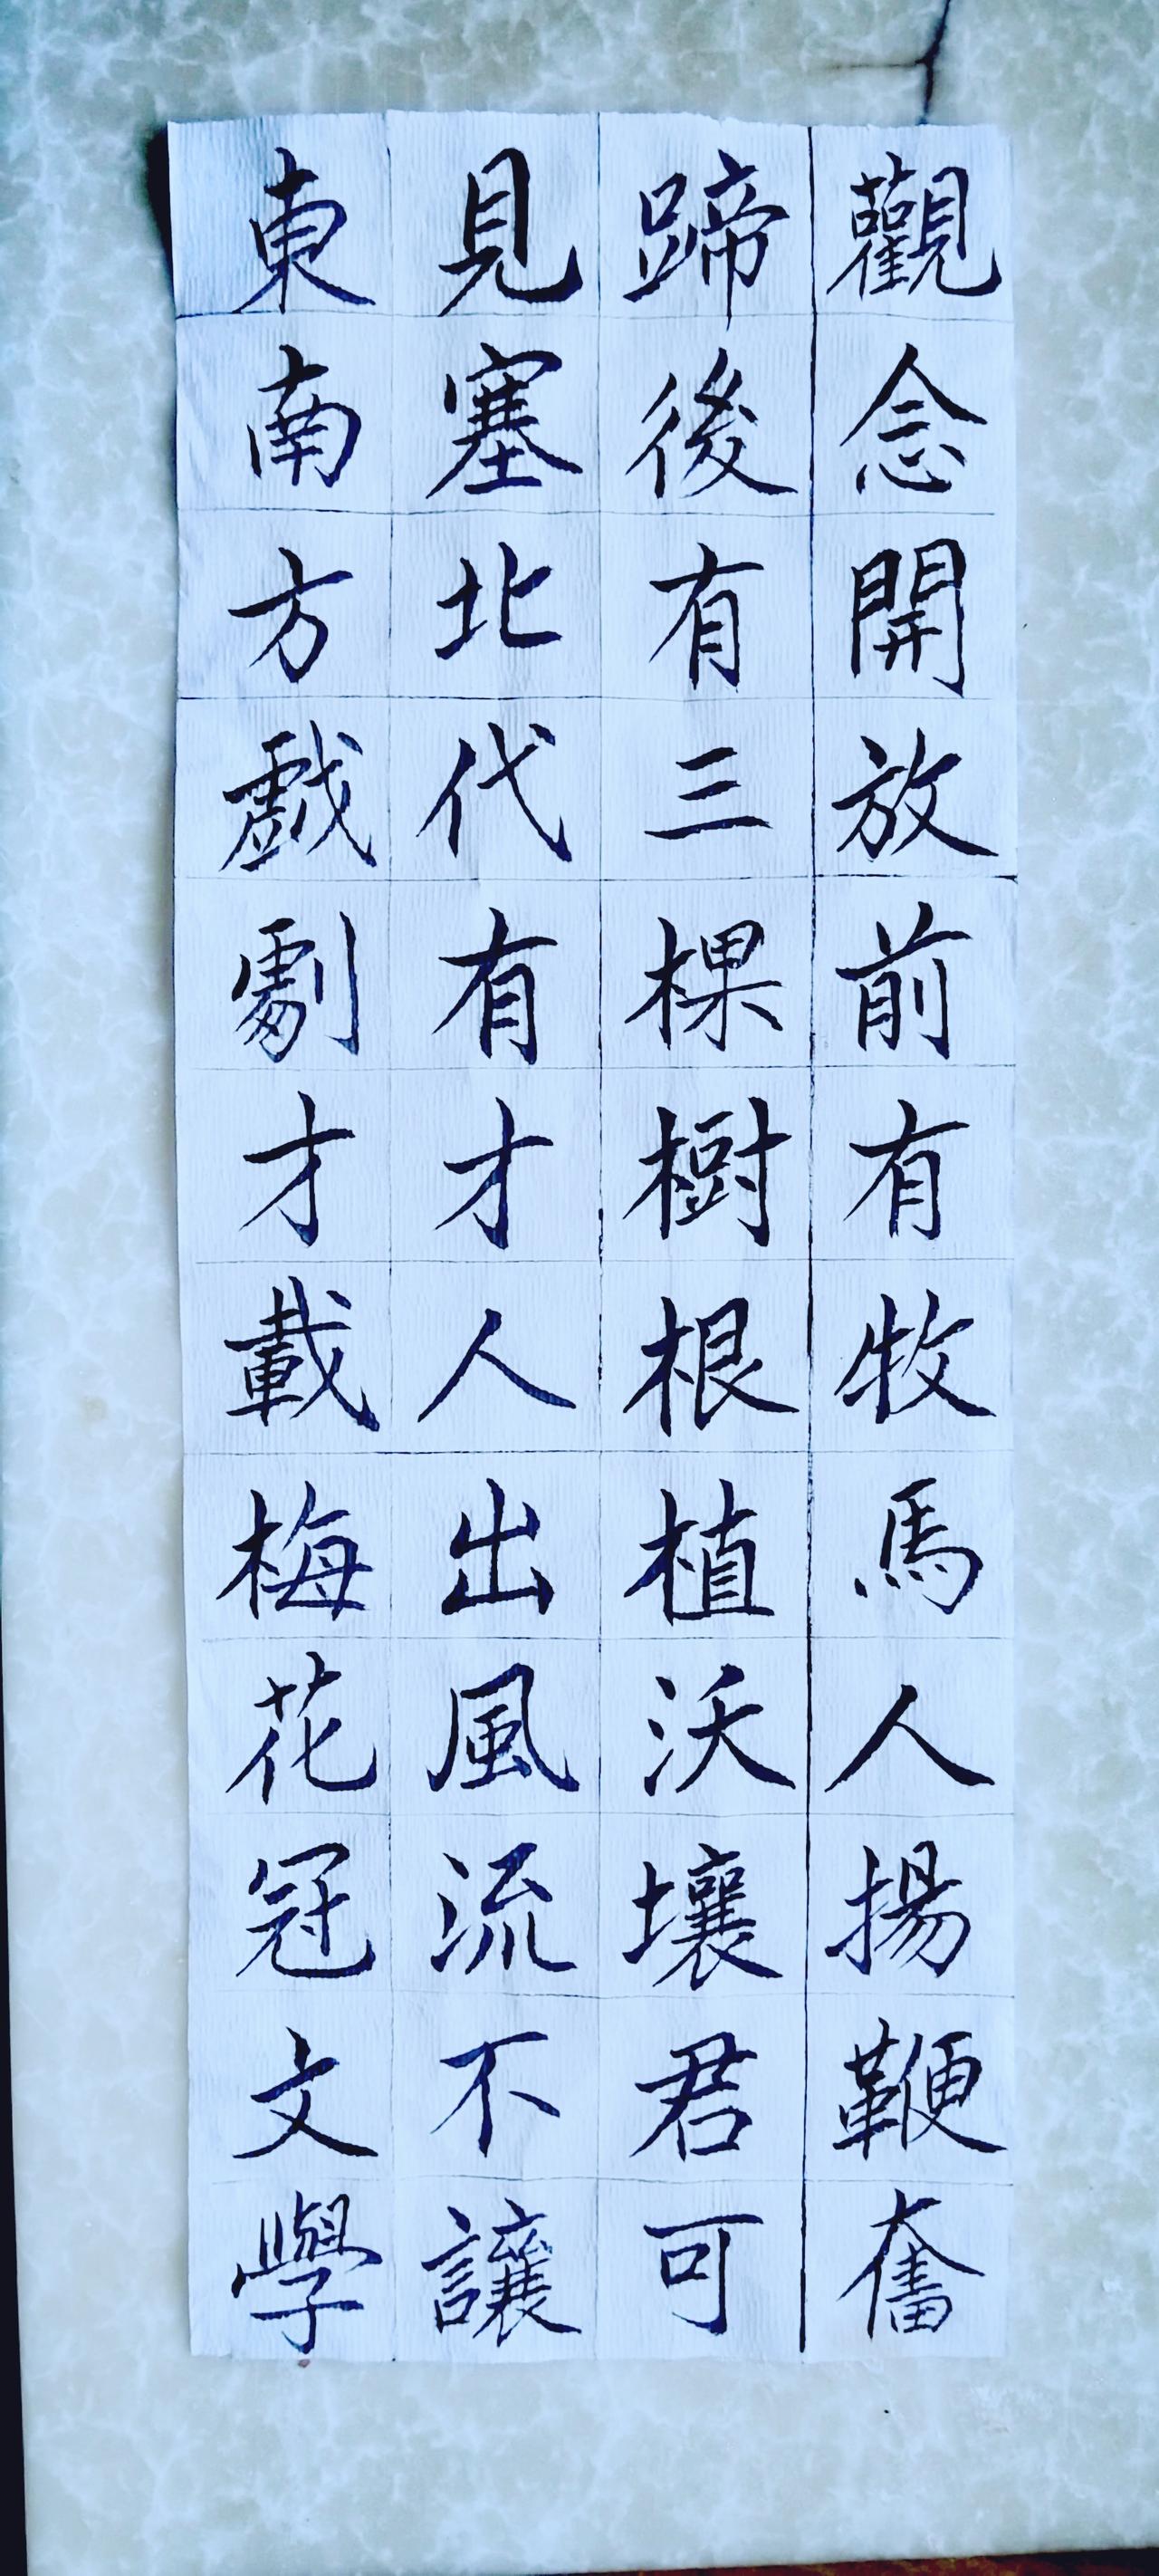 觀念開放前有牧馬人揚鞭奮
蹄後有三棵樹根植沃壤君可
見塞北代有才人出風流不讓
東南方戲劇才載梅花冠文學